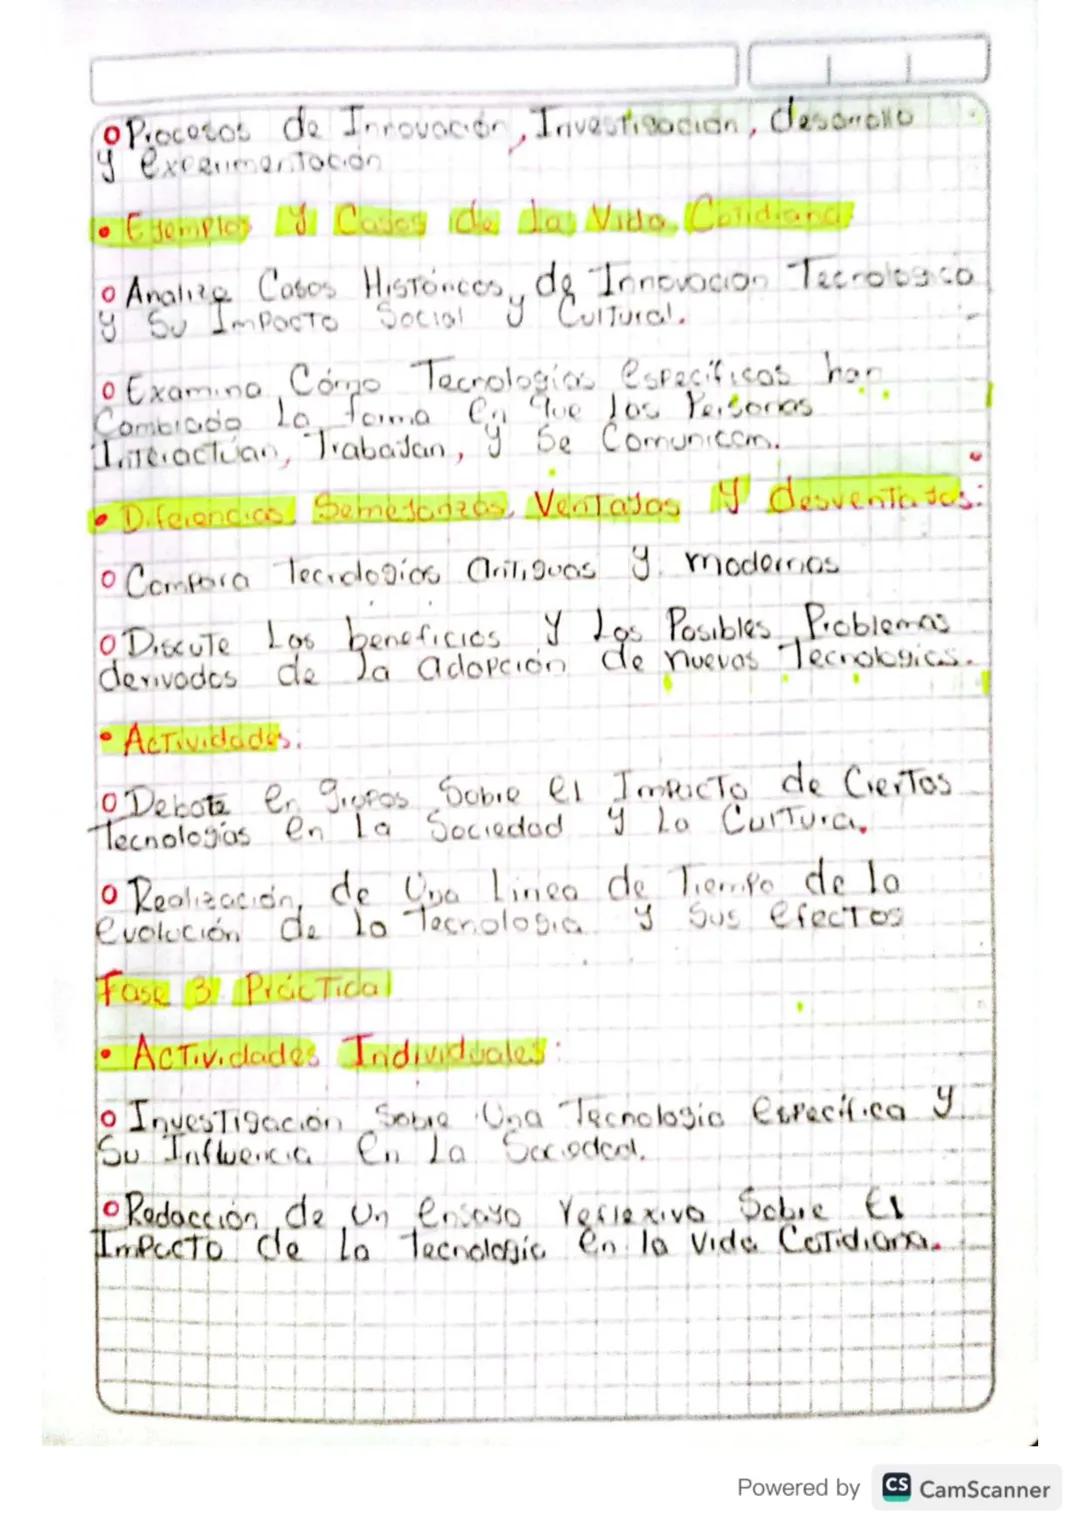 Procesos de Innovación, Investigación, desarrollo
y experimentación
• Ejemplos y Casos de la Vida Cotidiana
Analiza Casos Históricos de Innovacion Tecnologica
y Su Impacto Social y Cultural.
Examina Cómo Tecnologías específicas han
Cambiado La forma en que las Personas
Interactúan, Trabajan, y Se Comunican.
• Diferencias, Semejanzas, Ventajas y desventajas:
Compara Tecnologías antiguas y modernas
Discute Los beneficios y Los Posibles Problemas
derivados de la adopción de nuevas Tecnologias.
• Actividades:
Debate en grupos Sobre el Impacto de Ciertas
Tecnologías en La Sociedad y La Cultura.
Realización de Una Linea de Tiempo de la
evolución de la Tecnologia y Sus efectos
Fase 3 Práctica
• Actividades Individuales:
Investigación Sobre Una Tecnologia específica y
Su Influencia en La Sociedad.
Redacción de Un ensayo reflexivo Sobre El
Impacto de La Tecnologia en la vida Cotidiana.
Powered by CS CamScanner